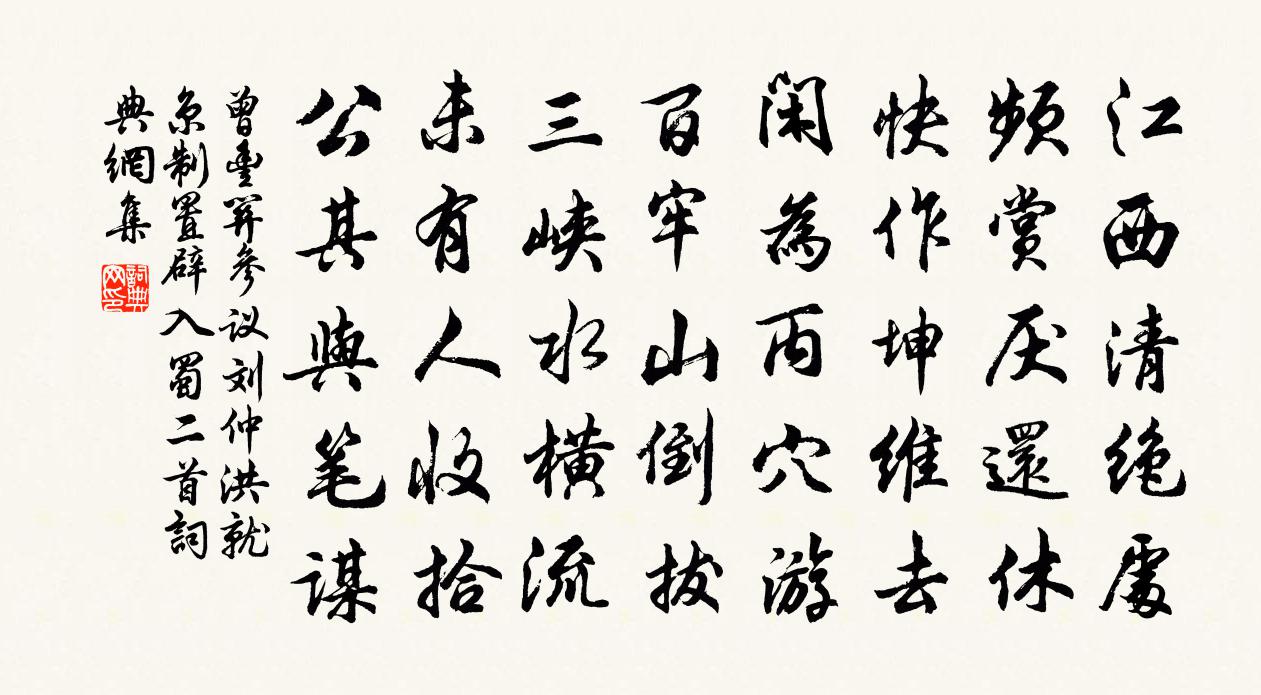 江西清绝處
頻賞厌還休
快作坤维去
閑為丙穴游
百牢山倒拔
三峡水橫流
未有人收拾
公其與笔谋
曾豐羿参议刘仲洪就
京制置辟入蜀二首詞
典網集
詞典网印